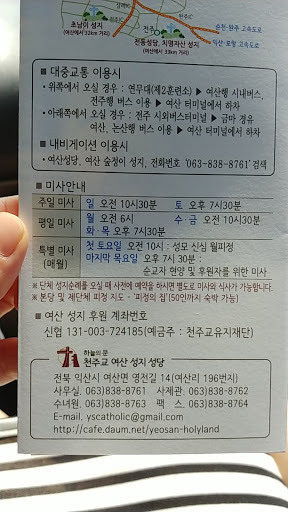 초남이 성지
(여산에서 33km 거리)
전주
전동성당, 치명자산 성지
(여산에서 32km 거리)
순천·완주 고속도로
익산·포항 고속도로
■ 대중교통 이용시
• 위쪽에서 오실 경우 : 연무대(제2훈련소) ▶ 여산행 시내버스,
전주행 버스 이용 ▶ 여산 터미널에서 하차
• 아래쪽에서 오실 경우 : 전주 시외버스터미널 ▶ 금마 경유
여산, 논산행 버스 이용 ▶ 여산 터미널에서 하차
■ 내비게이션 이용시
• 여산성당, 여산 숲정이 성지, 전화번호 '063-838-8761' 검색
■ 미사안내
주일 미사 일 오전 10시30분 토 오후 7시 30분
평일 미사 월 오전 6시 수·금 오전 10시30분
화·목 오후 7시30분
특별 미사 (매월) 첫 토요일 오전 10시 : 성모 신심 월피정
마지막 목요일 오후 7시 30분 :
순교자 현양 및 후원자를 위한 미사
※ 단체 성지순례를 오실 때 사전에 예약을 하시면 별도로 미사와 식사가 가능합니다.
※ 본당 및 제단체 피정 지도 - '피정의 집'(50인까지 숙박 가능)
■ 여산 성지 후원 계좌번호
신협 131-003-724185(예금주 : 천주교유지재단)
하늘의 문
천주교 여산 성지 성당
전북 익산시 여산면 영전길 14(여산리 196번지)
사무실. 063)838-8761 사제관. 063)838-8762
수녀원. 063)838-8763 팩 스. 063)838-8764
E-mail. yscatholic@gmail.com
http://cafe.daum.net/yeosan-holyland